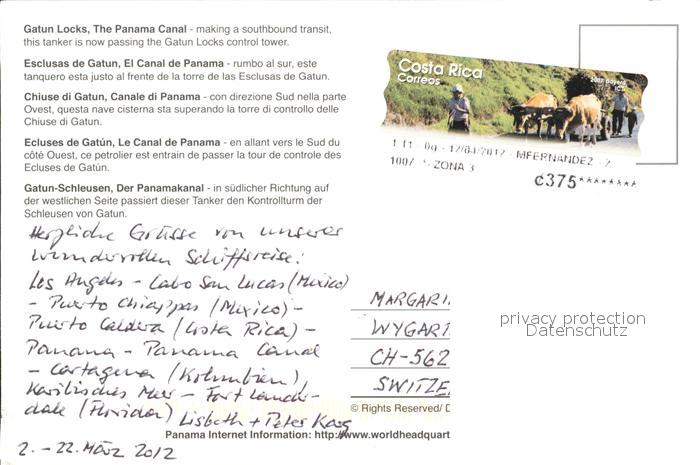 Gatun Locks, The Panama Canal - making a southbound transit,
this tanker is now passing the Gatun Locks control tower.
Esclusas de Gatun, El Canal de Panama - rumbo al sur, este
tanquero esta justo al frente de la torre de las Esclusas de Gatun.
Chiuse di Gatun, Canale di Panama - con direzione Sud nella parte
Ovest, questa nave cisterna sta superando la torre di controllo delle
Chiuse di Gatun.
Ecluses de Gatún, Le Canal de Panama - en allant vers le Sud du
côté Ouest, ce petrolier est entrain de passer la tour de controle des
Ecluses de Gatún.
Gatun-Schleusen, Der Panamakanal - in südlicher Richtung auf
der westlichen Seite passiert dieser Tanker den Kontrollturm der
Schleusen von Gatun.
Herzliche Grüsse von unserer
wundervollen Schiffsreise:
Los Angeles - Cabo San Lucas (Mexico)
- Puerto Chiappas (Mexico) -
Puerto Caldera (Costa Rica) -
Panama - Panama Canal
- Cartagena (Kolumbien),
Karibisches Meer - Fort Lauder-
dale (Florida) Lisbeth + Peter
2. - 22. März 2012
Costa Rica
Correos
2007 Boyero
ICT
17/04/2012 - MFERNANDEZ - 2
1007 ZONA 3
¢375********
MARGARI
WYGART
CH-562
SWITZE
privacy protection
Datenschutz
© Rights Reserved/ D
Panama Internet Information: http://www.worldheadquart